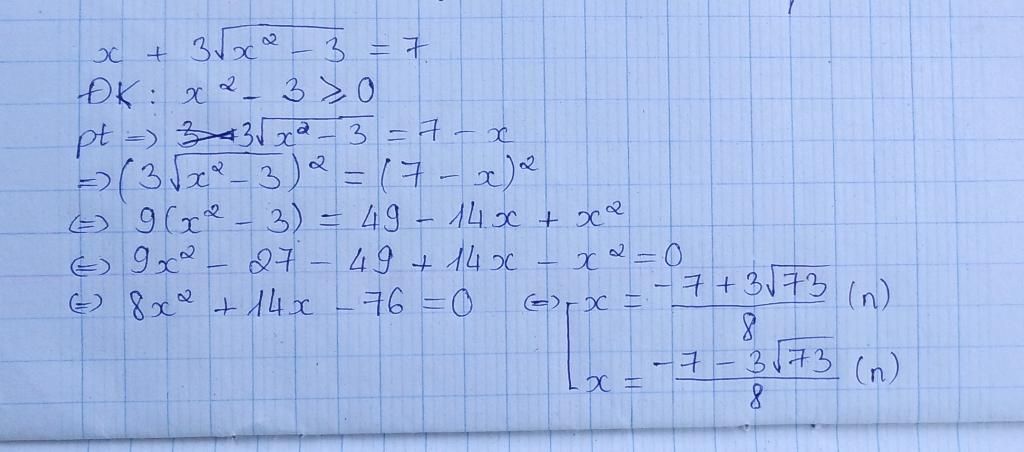 x + 3√(x² - 3) = 7
ĐK: x² - 3 ⩾ 0
pt => 3√(x² - 3) = 7 - x
=> (3√(x² - 3))² = (7 - x)²
<=> 9(x² - 3) = 49 - 14x + x²
<=> 9x² - 27 - 49 + 14x - x² = 0
<=> 8x² + 14x - 76 = 0 <=> [ x = (-7 + 3√73)/8 (n)
x = (-7 - 3√73)/8 (n)